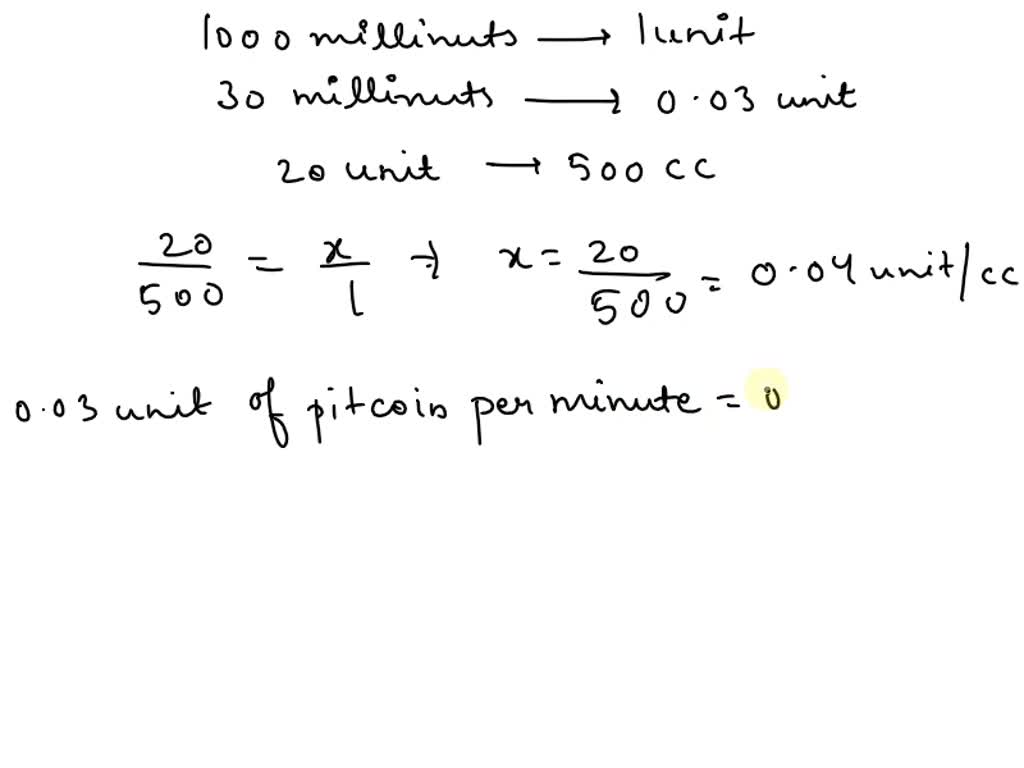 1000 millinuts → 1 unit
30 millinuts → 0.03 unit
20 unit → 500 cc
20/500 = x/1 → x = 20/500 = 0.04 unit/cc
0.03 unit of pitcoin per minute = 0